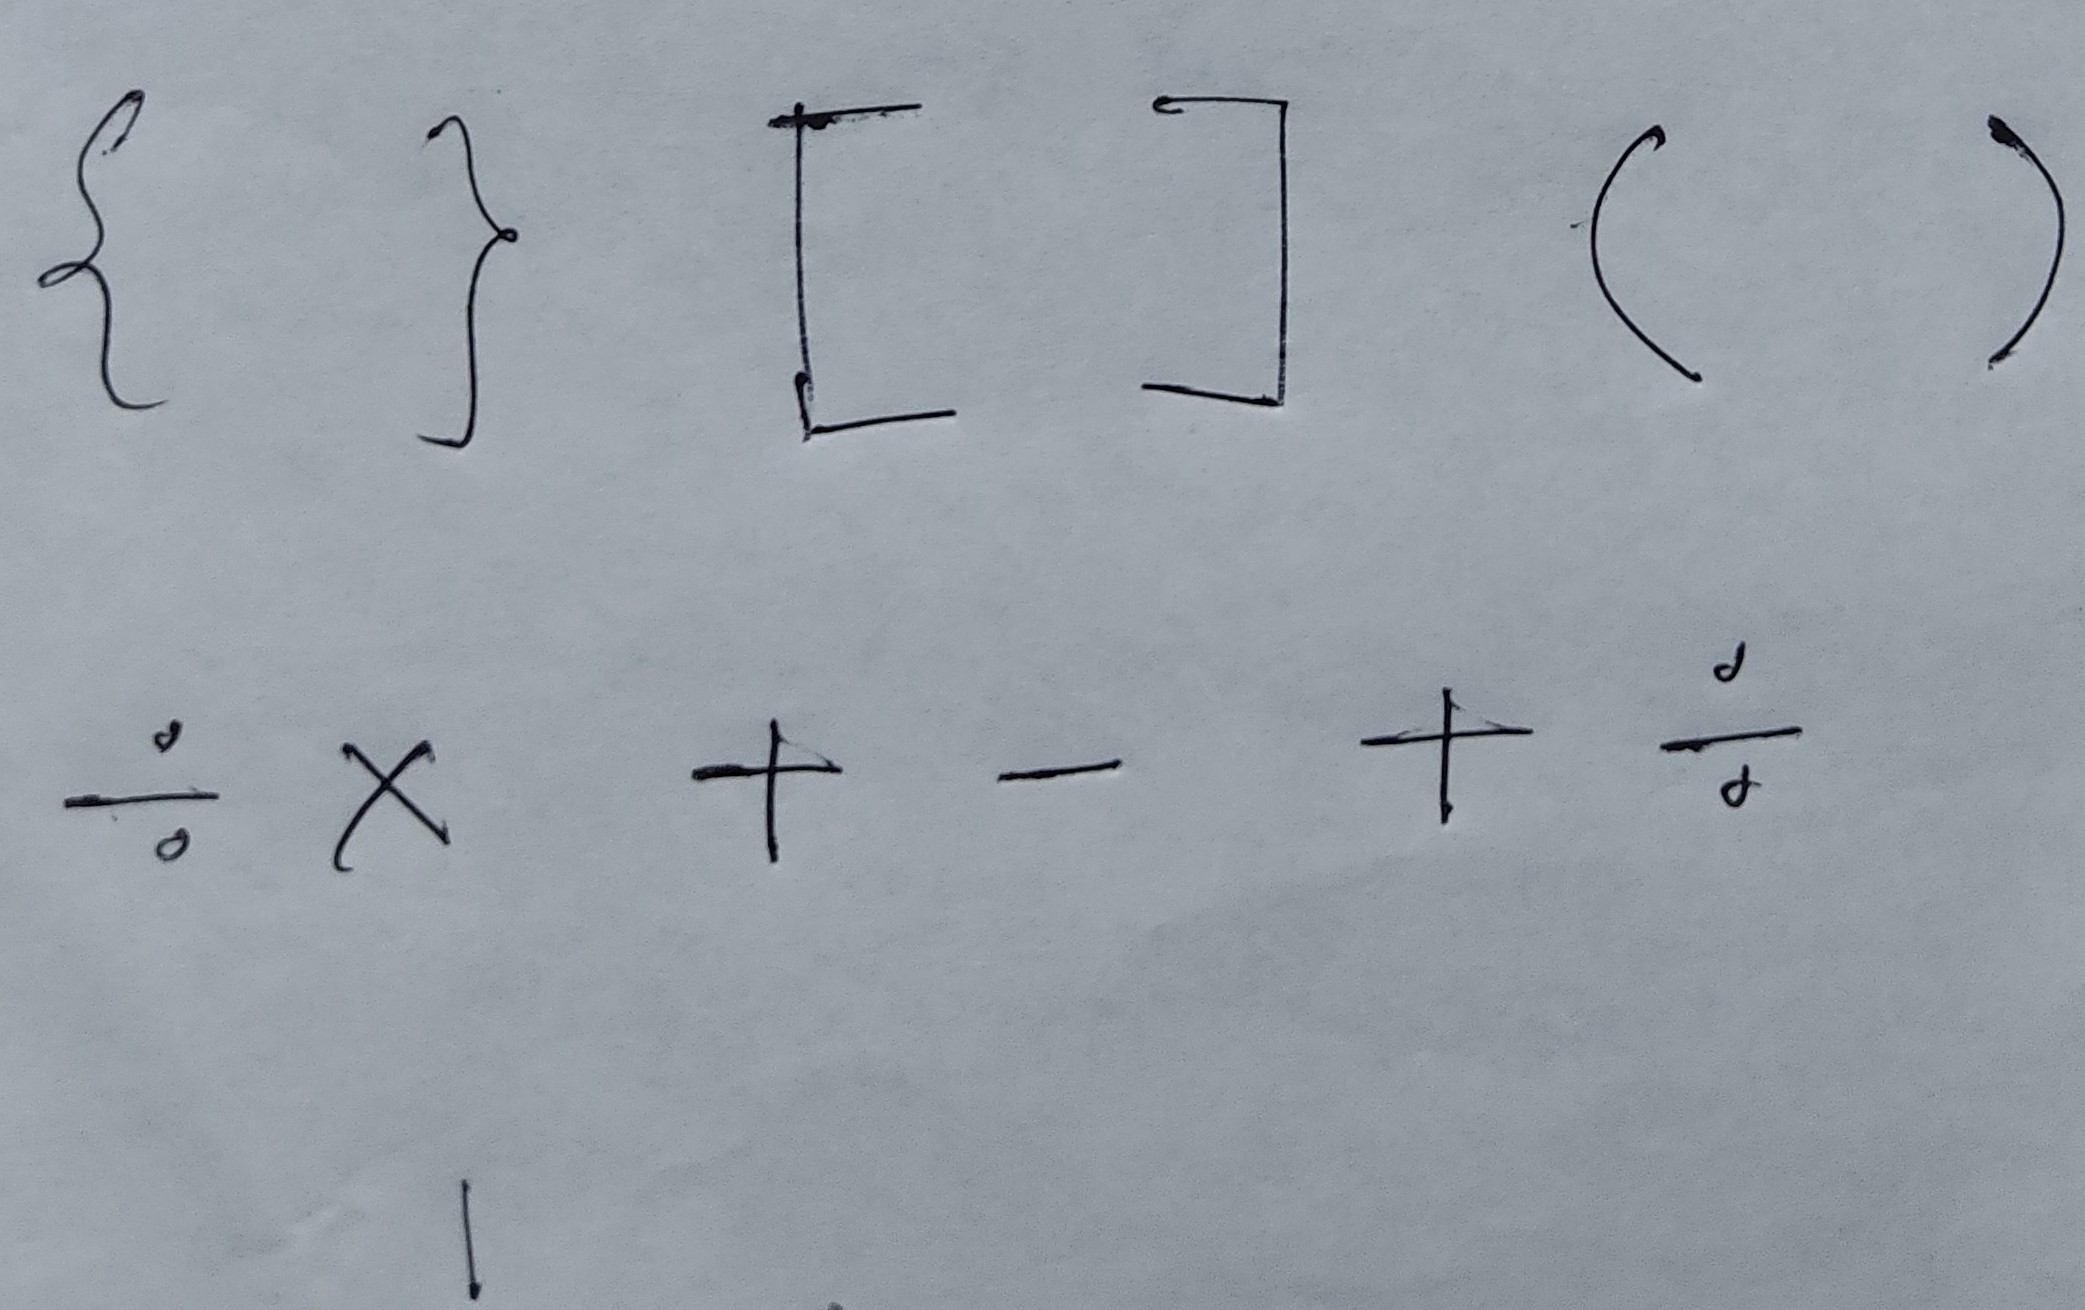 { } [ ] ( )
÷ × + - + ÷
|